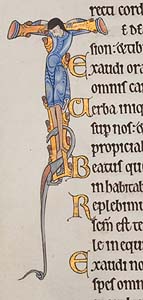 recti cord
E DE
sion: & tibi
Exaudi ora
omnis car
Uerba iniqu
sup nos: &
propiciab
Beatus que
inhabitab
Replebimur
scm̄ est te
le in equi
Exaudi no
spes omni